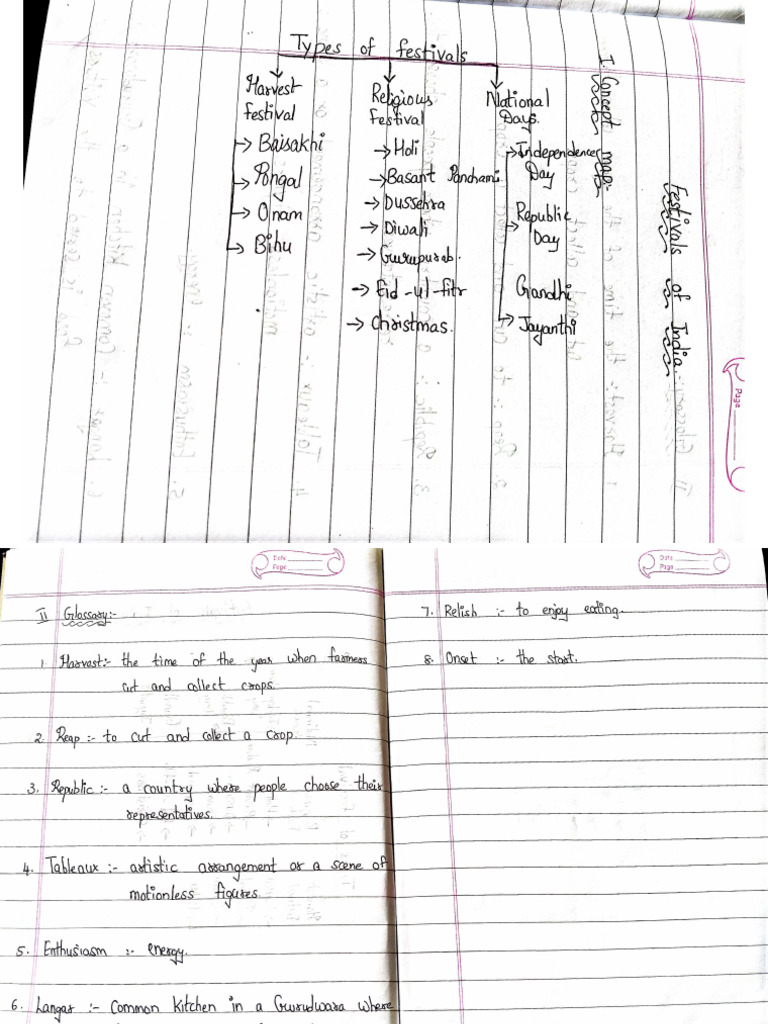 Festivals of India:-
I Concept map:-
Types of festivals
Harvest
festival
Baisakhi
Pongal
Onam
Bihu
Religious
festival
Holi
Basant Panchami
Dussehra
Diwali
Gurupurab.
Eid-ul-fitr
Christmas.
National
Days.
Independence
Day
Republic
Day
Gandhi
Jayanthi
Page
Date
Page
II Glossary:-
1. Harvest:- the time of the year when farmers
cut and collect crops.
2. Reap :- to cut and collect a crop.
3. Republic :- a country where people choose their
representatives.
4. Tableaux :- artistic arrangement or a scene of
motionless figures.
5. Enthusiasm :- energy.
6. Langar :- Common kitchen in a Gurudwara where
Date
Page
7. Relish :- to enjoy eating.
8. Onset :- the start.